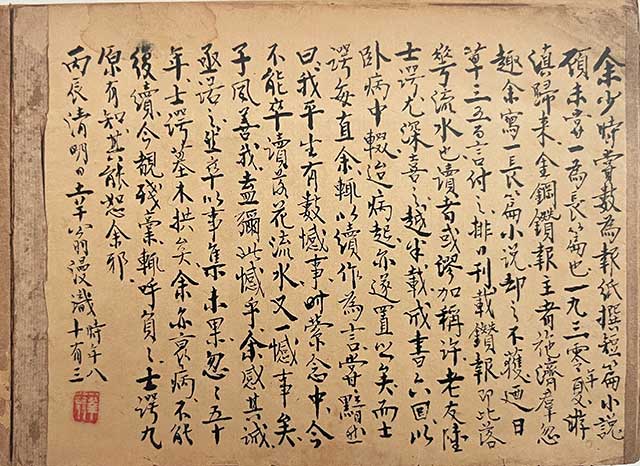 余少時嘗數為報紙撰短篇小說
顧未嘗一為長篇也一九三零年夏游
滇歸來金鋼鑽報主者施濟羣忽
趣余寫一長篇小說卻之不獲迺日
草三五百言付之排日刊載鑽報即此落
花流水也讀者或謬加稱許老友陸
士諤尤深喜之越半載成書六回以
臥病中輟迨病起亦遂置之矣而士
諤每直余輒以續作為言嘗黯然
曰我平生有數憾事時縈念中今
不能卒讀落花流水又一憾事矣
子風善我盍彌此憾乎余感其誠
亟諾之然卒以事集未果忽忽五十
年士諤墓木拱矣余亦衰病不能
復續今覩殘藁輒呼負負士諤九
原有知其能恕余邪
丙辰清明日翁漫識時年八十有三